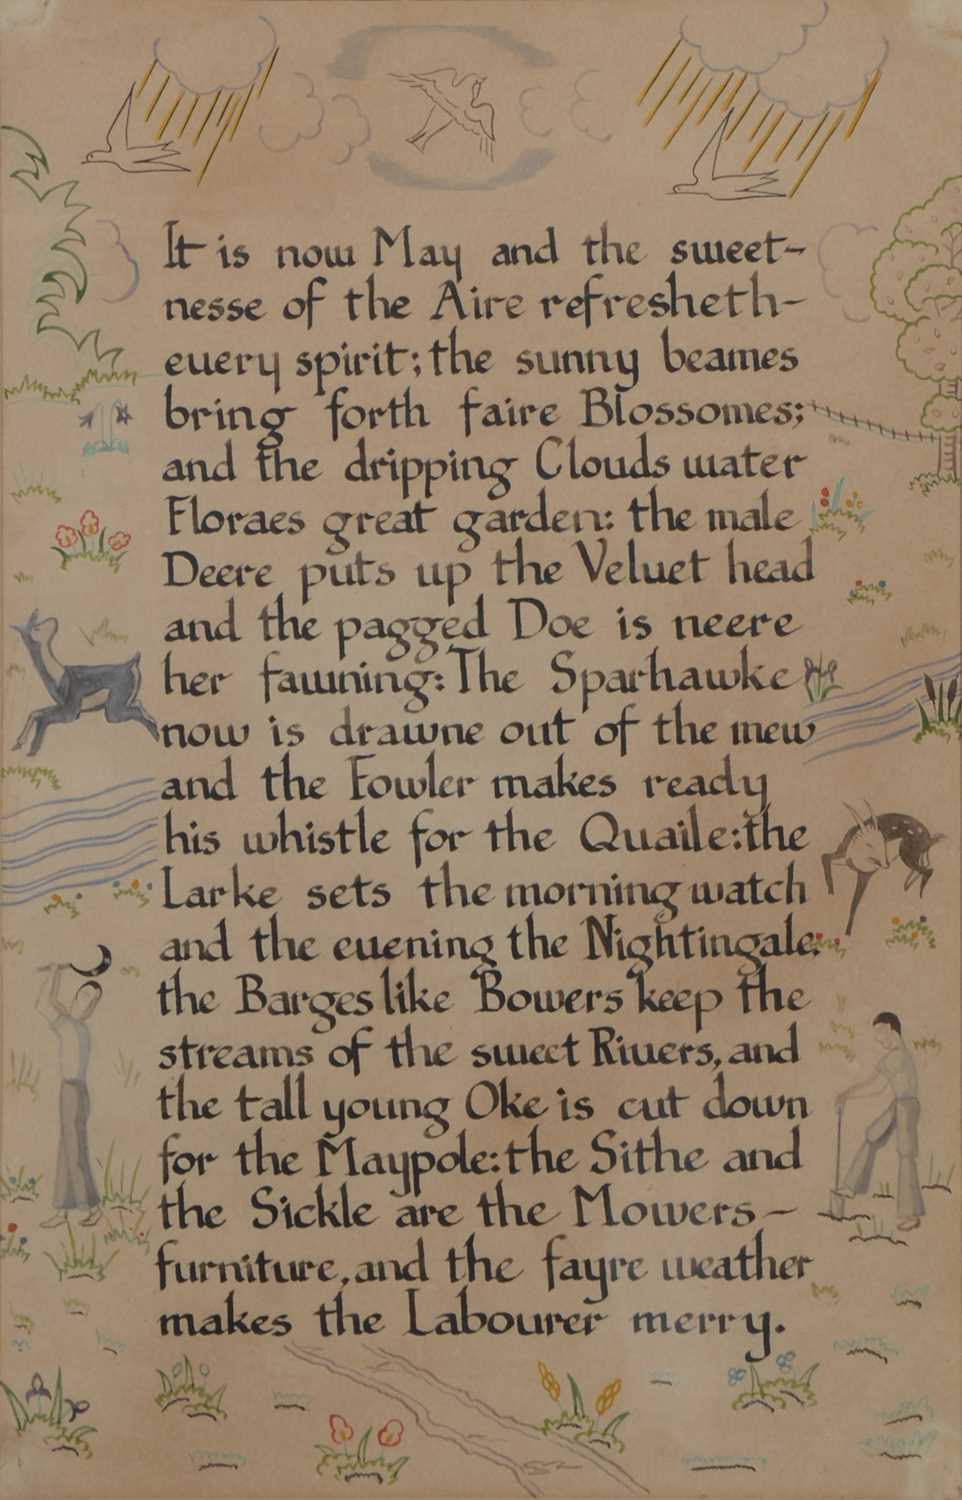 It is now May and the sweet-
nesse of the Aire refresheth-
euery spirit; the sunny beames
bring forth faire Blossomes;
and the dripping Clouds water
Floraes great garden: the male
Deere puts up the Veluet head
and the pagged Doe is neere
her fawning: The Sparhawke
now is drawne out of the mew
and the Fowler makes ready
his whistle for the Quaile: the
Larke sets the morning watch
and the euening the Nightingale:
the Barges like Bowers keep the
streams of the sweet Riuers, and
the tall young Oke is cut down
for the Maypole: the Sithe and
the Sickle are the Mowers -
furniture, and the fayre weather
makes the Labourer merry.